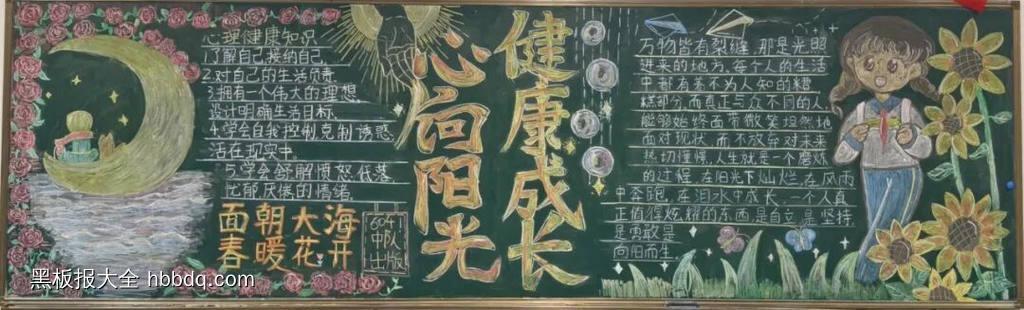 心理健康知识
了解自己,接纳自己.
2.对自己的生活负责
3.拥有一个伟大的理想
设计明确生活目标.
4.学会自我控制克制诱惑
活在现实中.
5.学会舒解愤怒低落
忧郁厌倦的情绪.
面朝大海
春暖花开
604
中队
出版
健康成长
心向阳光
万物皆有裂缝,那是光照
进来的地方,每个人的生活
中都有着不为人知的糟
糕部分,而真正与众不同的人
能够始终面带微笑坦然地
面对现状,而不放弃对未来
热切憧憬,人生就是一个磨炼
的过程,在阳光下灿烂,在风雨
中奔跑,在泪水中成长,一个人真
正值得炫耀的东西是自立是坚持
是勇敢是
向阳而生.
黑板报大全 hbbdq.com